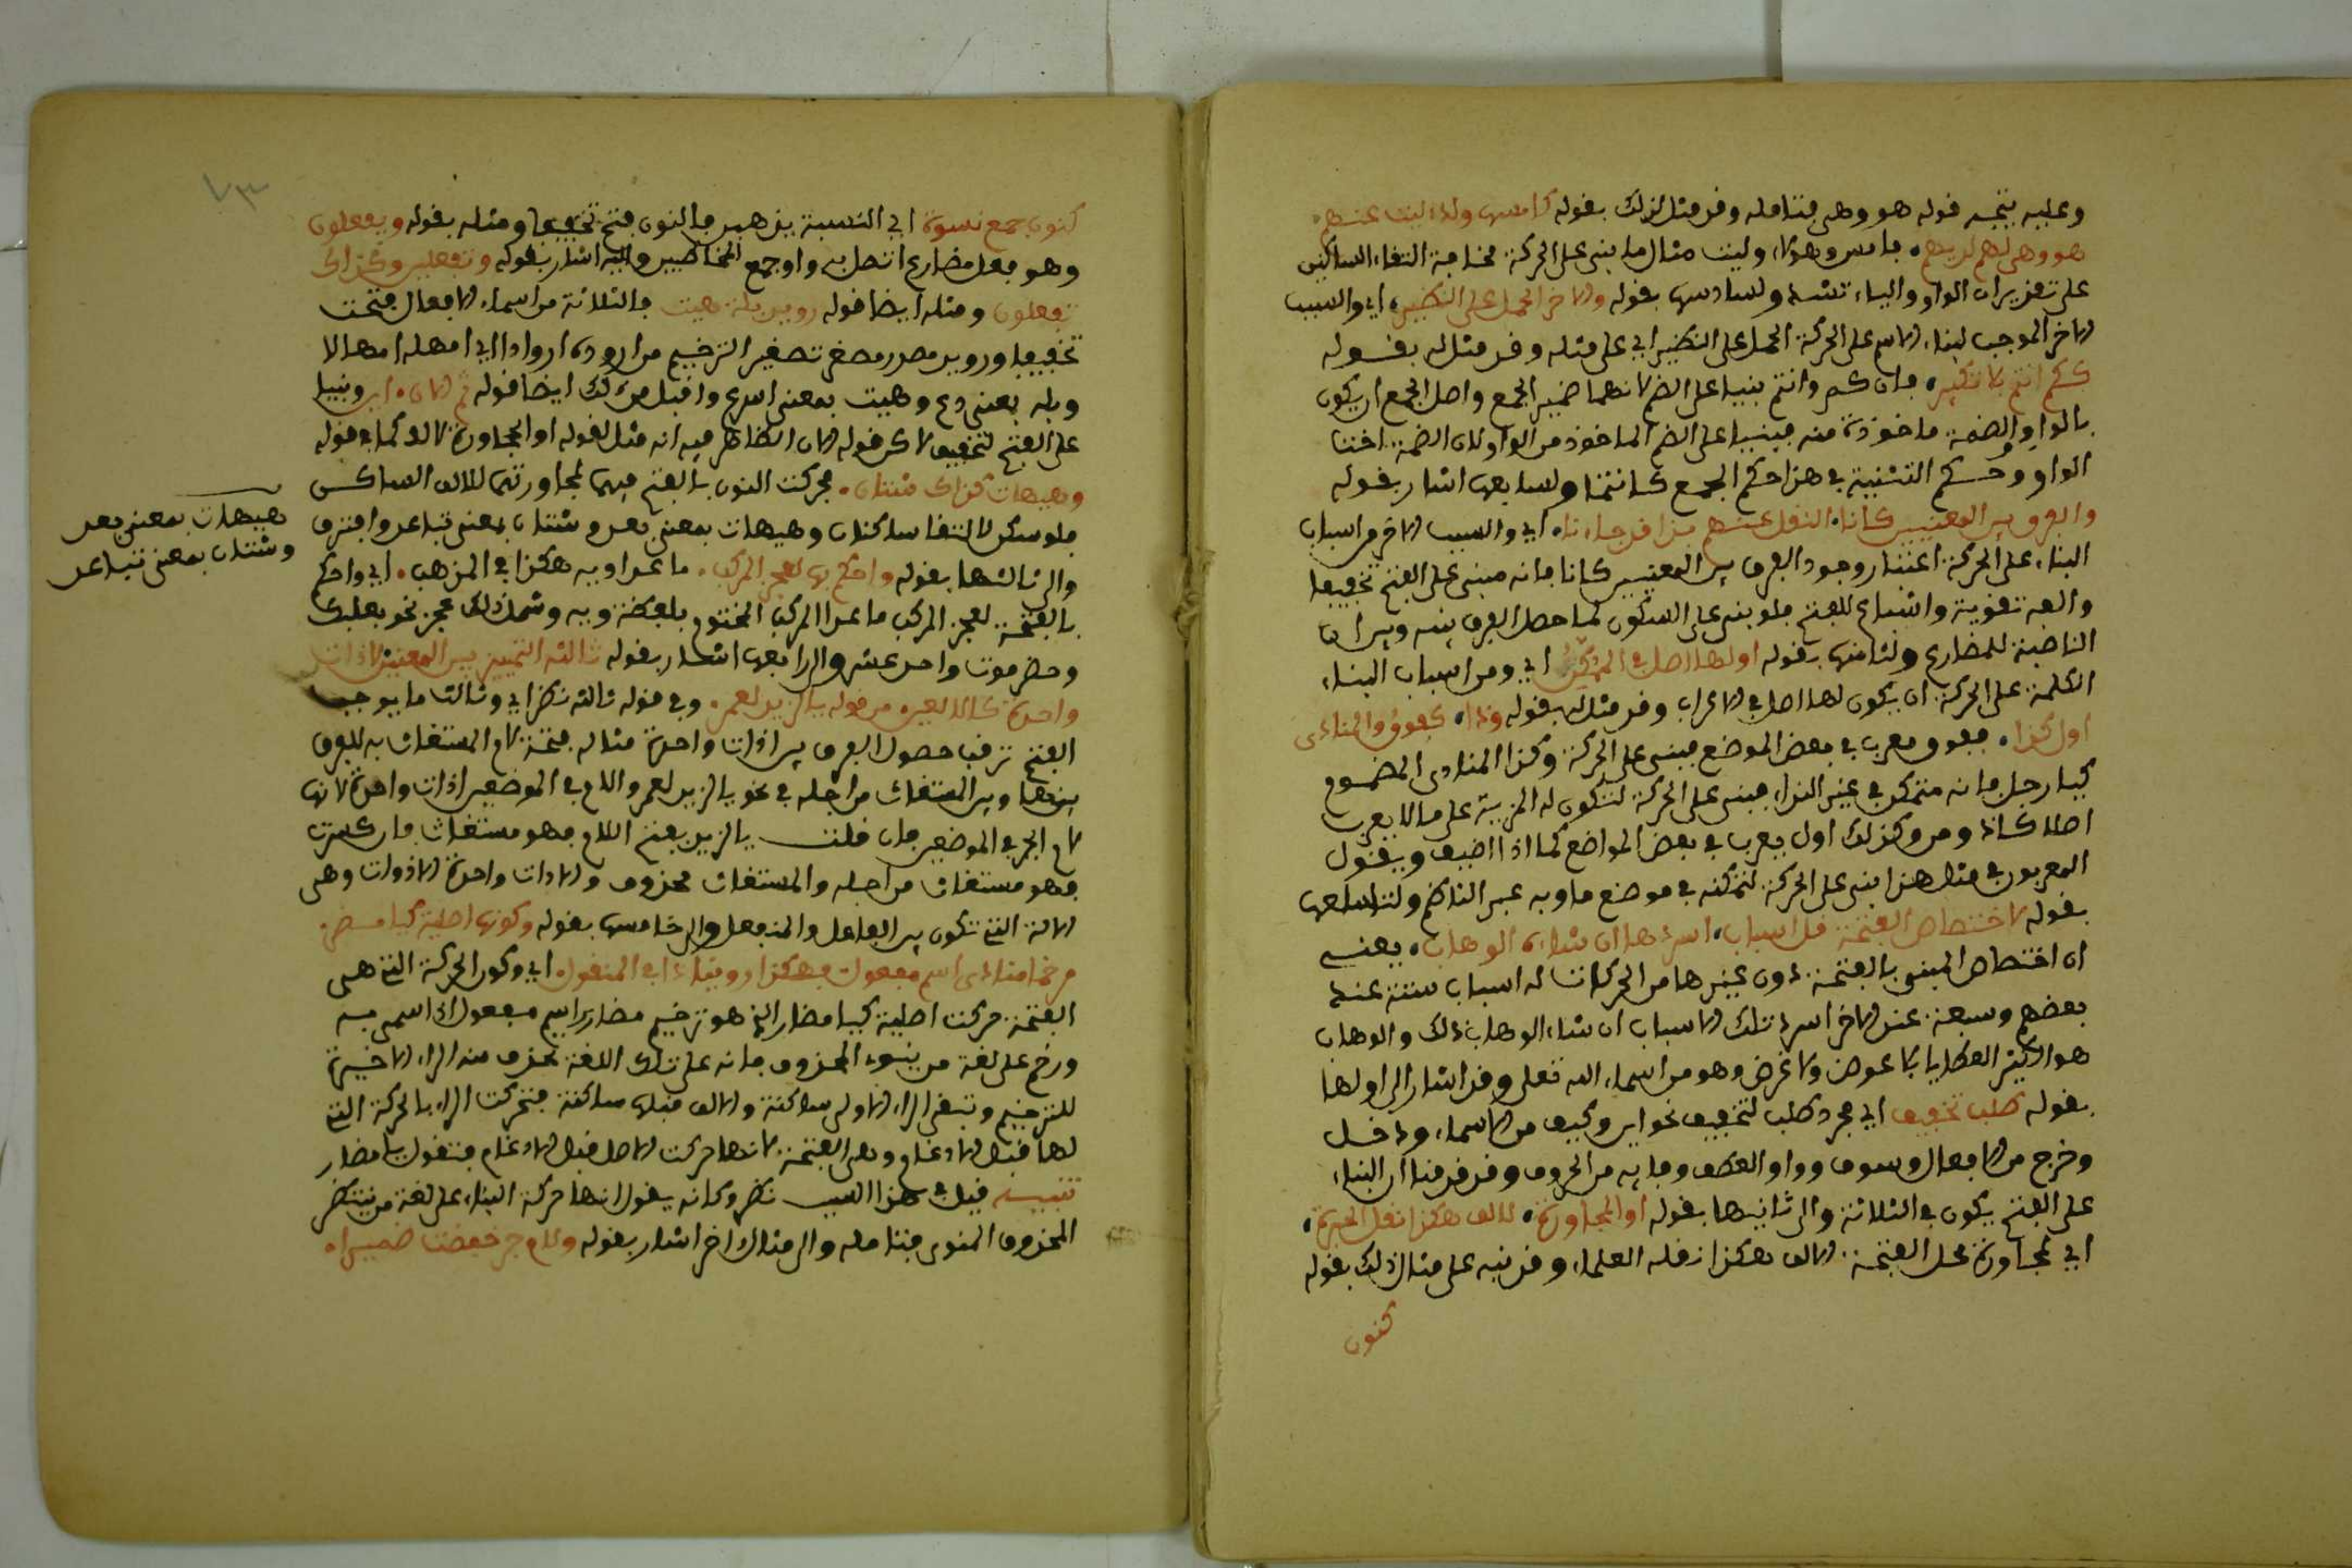 وعليه يتجه قوله هو وهي فتامله وقد مثل لذلك بقوله كامس ولذا ليت عندهم
هو وهي لهم لديهم. فامس وهولاء وليت مثال ما بني على الحركة مخافة التقاء الساكنين
على تقدير ان الواو والياء تشد ولسادسها بقوله والاخر الحمل على النظير، اي والسبب
الاخر الموجب لبناء الاسم على الحركة الحمل على النظير اي على مثله وقد مثل له بقوله
ككم انتم بلا نكير، فان كم وانتم بنيا على الضم لانهما ضمير الجمع واصل الجمع ان يكون
بالواو والضمة ماخوذة منه فبنيا على الضم الماخوذ من الواو لان الضمة اخت
الواو وحكم التثنية في هذا حكم الجمع كانتما ولسابعها اشار بقوله
والفرق بين المعنيين كانا. النقل عندهم بذا قد جاءنا. اي والسبب الاخر من اسباب
البناء على الحركة اعتبار وجود الفرق بين المعنيين كانا فانه مبني على الفتح تخفيفا
والفه تقوية واشباع للفتح فلو بني على السكون لما حصل الفرق بينه وبين ان
الناصبة للمضارع ولثامنها بقوله اولها اصل في التمكن اي ومن اسباب البناء
الكلمة على الحركة ان يكون لها اصل في الاعراب وقد مثل لها بقوله وذا، كفوق والمنادى
اول كذا. ففوق معرب في بعض المواضع مبني على الحركة وكذا المنادى المضموم
كيا رجل فانه متمكن في غير النداء فبني على الحركة لتكون له المزية على ما لا يعرب
اصلا كاذ ومن وكذلك اول يعرب في بعض المواضع كما اذا اضيف ويقول
المعربون في مثل هذا بني على الحركة لتمكنه في موضع ما وبه عبر الناظم ولتاسعها
بقوله لاختصاص الفتحة قل اسباب، اسردها ان شاءه الوهاب، يعني
ان اختصاص المبني بالفتحة دون غيرها من الحركات له اسباب ستة عند
بعضهم وسبعة عند الاخر اسرد تلك الاسباب ان شاء الوهاب ذلك والوهاب
هو الكثير العطايا بلا عوض ولا غرض وهو من اسماء الله تعلى وقد اشار الى اولها
بقوله طلب تخفيف اي مجرد طلب لتخفيف نحو اين وكيف من الاسماء، ودخل
وخرج من الافعال وسوف وواو العطف وفايه من الحروف وقد قدمنا ان البناء
على الفتح يكون في الثلاثة والى ثانيها بقوله او المجاورة، للالف هكذا نقل الخيرة،
اي لمجاورة محل الفتحة الالف هكذا نقله العلماء وقد نبه على مثال ذلك بقوله
كنون
٧٣
كنون جمع نسوة اي النسبة يذهبن فالنون فتح تخفيفا ومثله بقوله ويفعلون
وهو فعل مضارع اتصل به واو جمع المخاطبين واليه اشار بقوله وتفعلين وكذاك
تفعلون ومثله ايضا قوله رويد بله هيت فالثلاثة من اسماء الافعال فتحت
تخفيفا ورويد مصدر مصغر تصغير الترخيم من اروده اروادا اي امهله امهالا
وبله بمعنى دع وهيت بمعنى اسرع واقبل من ذلك ايضا قوله ثم الان، اي وبنيا
على الفتح لتخفيف لاكن قوله الان الظاهر فيه انه مثل لقوله او المجاورة للالف كما في قوله
وهيهات كذاك شتان. فحركت النون بالفتح فيهما لمجاورتهما للالف الساكن
فلو سكن لالتقا ساكنان وهيهات بمعنى بعد وشتان بمعنى تباعد وافترق
والى ثالثها بقوله واحكم بها لعجز المركب. ما عدا ويه هكذا في المذهب. اي واحكم
بالفتحة لعجز المركب ما عدا المركب المختوم بلفظة ويه وشمل ذلك عجز نحو بعلبك
وحضرموت واحد عشر والى رابعها اشار بقوله ثالثه التمييز بين المعنيين لاذات
واحدة كاللامين. من قوله يا لزيد لعمر. وفي قوله ثالثه نظر اي وثالث ما يوجب
الفتح ترقب حصول الفرق بين اذات واحدة مثاله فتحة لام المستغاث به للفرق
بينها وبين المستغاث من اجله في نحو يا لزيد لعمر واللام في الموضعين اذات واحدة لانها
لام الجر في الموضعين فان قلت يا لزيد بفتح اللام فهو مستغاث فان كسرت
فهو مستغاث من اجله والمستغاث محذوف والادات واحدة الاذوات وهي
الالة التي تكون بين الفاعل والمنفعل والى خامسها بقوله وكونها اصلية كيا مضر.
مرخما منادى اسم مفعول فهكذا رويناه في المنقول. اي وكون الحركة التي هي
الفتحة حركت اصلية كيا مضار الذي هو ترخيم مضارر اسم مفعول اذا سمي به
ورخم على لغة من ينوي المحذوف فانه على تلك اللغة تحذف منه الراء الاخيرة
للترخيم وتبقى الراء الاولى ساكنة والالف قبلها ساكنة فتحركت الراء بالحركة التي
لها قبل الادغام وهي الفتحة لانها حركت الاصل قبل الادغام فتقول يا مضار
تنبيه قيل في هذا السبب نظر وكانه يقول انها حركة البناء على لغة من ينتظر
المحذوف المنوي فتامله والى مثال اخر اشار بقوله ولام جر خفضت ضميرا.
هيهات بمعنى بعد
وشتان بمعنى تباعد